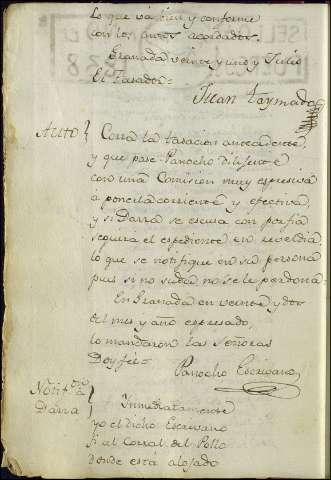 Lo que vá bien y conforme
con los autos acordados.
Granada veinte y uno y Julio
El Tasador=
Juan Taymado
Auto} Corra la tasacion antecedente,
y que pase Panocho diligente
con una Comision muy expresiva
á ponerla corriente y efectiva,
y si Darra se escusa con porfia
seguira el espediente en rebeldia,
lo que se notifique en su persona
pues si no suda no se le perdona=
En Granada en veinte y dos
del mes y año espresado,
lo mandaron las Señoras
Doy fé=
Panocho Escribano
Notif.on a
Darra} Inmediatamente
yo el dicho Escribano
fi al Corral del Pollo
donde está alojado